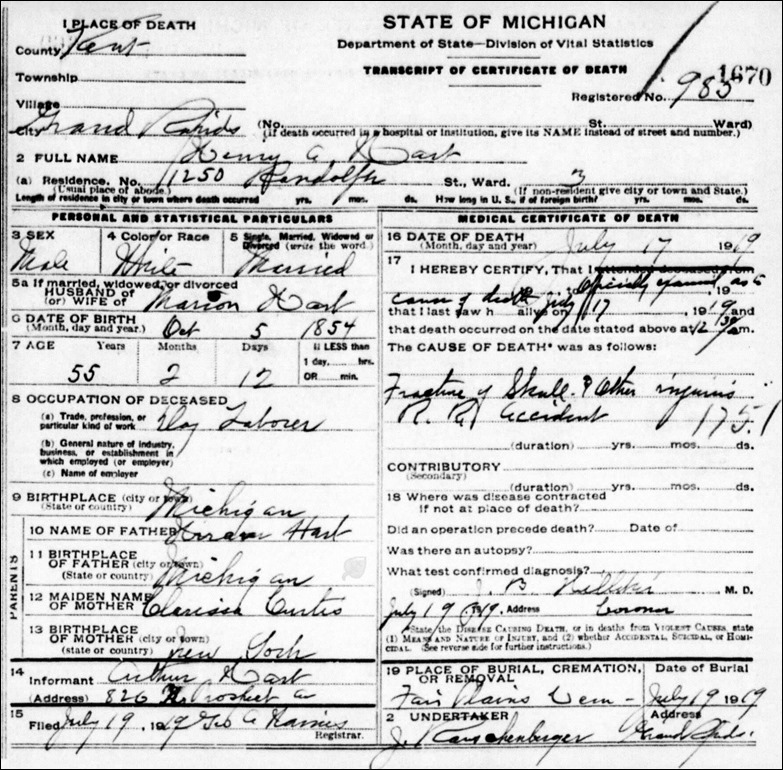 STATE OF MICHIGAN
Department of State—Division of Vital Statistics
TRANSCRIPT OF CERTIFICATE OF DEATH
1670
Registered No. 985
1 PLACE OF DEATH
County Kent
Township
Village
City Grand Rapids (No. St. Ward)
(If death occurred in a hospital or institution, give its NAME instead of street and number.)
2 FULL NAME Henry A. Hart
(a) Residence. No. 1250 Randolph St., Ward. 3
(Usual place of abode.) (If non-resident give city or town and State.)
Length of residence in city or town where death occurred yrs. mos. ds. How long in U. S., if of foreign birth? yrs. mos. ds.
PERSONAL AND STATISTICAL PARTICULARS
3 SEX 4 Color or Race 5 Single, Married, Widowed or Divorced (write the word.)
Male White Married
5a If married, widowed, or divorced
HUSBAND OF
(or) WIFE OF Marion Hart
6 DATE OF BIRTH
(Month, day and year.) Oct 5 1854
7 AGE Years Months Days If LESS than
1 day, hrs.
OR min.
55 2 12
8 OCCUPATION OF DECEASED
(a) Trade, profession, or particular kind of work Day Laborer
(b) General nature of industry, business, or establishment in which employed (or employer)
(c) Name of employer
9 BIRTHPLACE (city or town)
(State or country) Michigan
PARENTS
10 NAME OF FATHER Hart
11 BIRTHPLACE OF FATHER (city or town)
(State or country) Michigan
12 MAIDEN NAME OF MOTHER Clarissa Curtis
13 BIRTHPLACE OF MOTHER (city or town)
(state or country) New York
14
Informant Arthur Hart
(Address) 826 Prospect
15
Filed July 19 1919 Geo A Registrar.
MEDICAL CERTIFICATE OF DEATH
16 DATE OF DEATH
(Month, day and year) July 17 1919
17
I HEREBY CERTIFY, That I attended deceased from
Officially as to
, 19 to , 19
cause of death July 17
that I last saw h alive on , 1919 and
that death occurred on the date stated above at 12 30 am.
The CAUSE OF DEATH* was as follows:
Fracture of Skull & Other injuries
R. R. Accident 175.1
(duration) yrs. mos. ds.
CONTRIBUTORY
(Secondary)
(duration) yrs. mos. ds.
18 Where was disease contracted
if not at place of death?
Did an operation precede death? Date of
Was there an autopsy?
What test confirmed diagnosis?
(Signed) J. B. M. D.
July 19 1919. Address Coroner
*State the DISEASE CAUSING DEATH, or in deaths from VIOLENT CAUSES, state
(1) MEANS AND NATURE OF INJURY, and (2) whether ACCIDENTAL, SUICIDAL, or HOMI-
CIDAL. (See reverse side for further instructions.)
19 PLACE OF BURIAL, CREMATION, OR REMOVAL Date of Burial
Fair Plains Cem July 19 1919
2 UNDERTAKER Address
J. Rauschenberger Grand Rapids